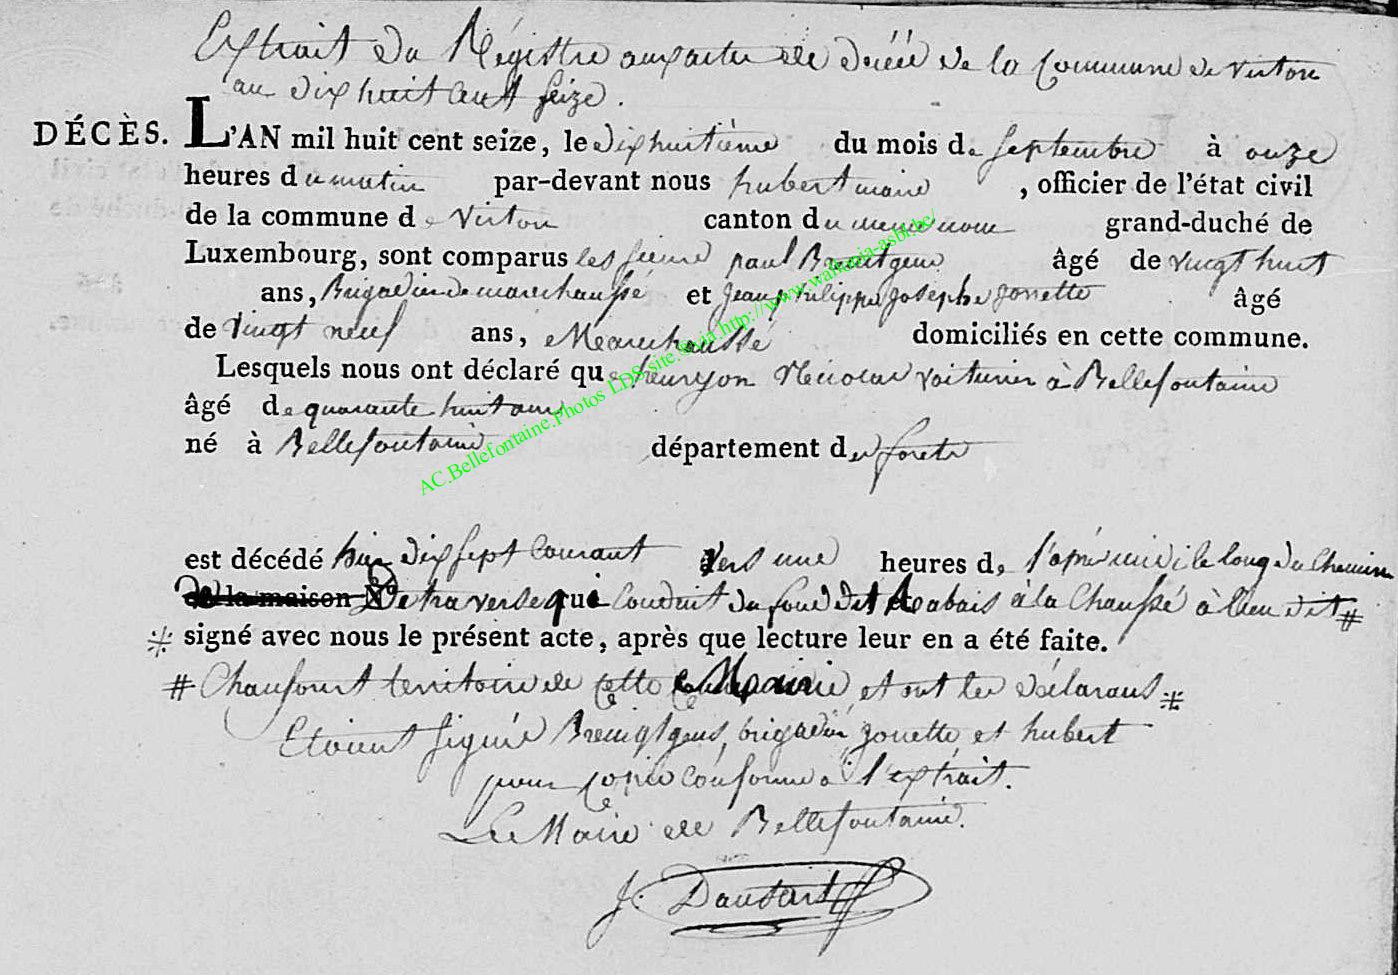 Extrait du Régistre aux actes de décéé de la Commune de Virton
an dix huit cent seize.
DÉCÈS. L'AN mil huit cent seize, le dixhuitième du mois de septembre à onze
heures du matin par-devant nous hubert maire , officier de l'état civil
de la commune de Virton canton du meme nom grand-duché de
Luxembourg, sont comparus les sieurs paul âgé de vingt huit
ans, Brigadier de marechaussé et Jean philippe Josephe Jonette âgé
de vingt neuf ans, Marechaussé domiciliés en cette commune.
Lesquels nous ont déclaré que henryon Nicolas voiturier à Bellefontaine
âgé de quarante huit ans
né à Bellefontaine département des forets
est décédé hier dix sept Courant vers une heures de l'apré midi le long du Chemin
de la maison De traverse qui Conduit du fond des Rabais à la Chaussé à lieu dit #
* signé avec nous le présent acte, après que lecture leur en a été faite.
# Chaufourt territoire de cette Mairie et ont les déclarans *
Etoient signé brigadier, Jonette et hubert
pour copie conforme à l'extrait.
Le Maire de Bellefontaine.
J. Dausait
AC.Bellefontaine.Photos LDS site & via http://www.wallonia-asbl.be/